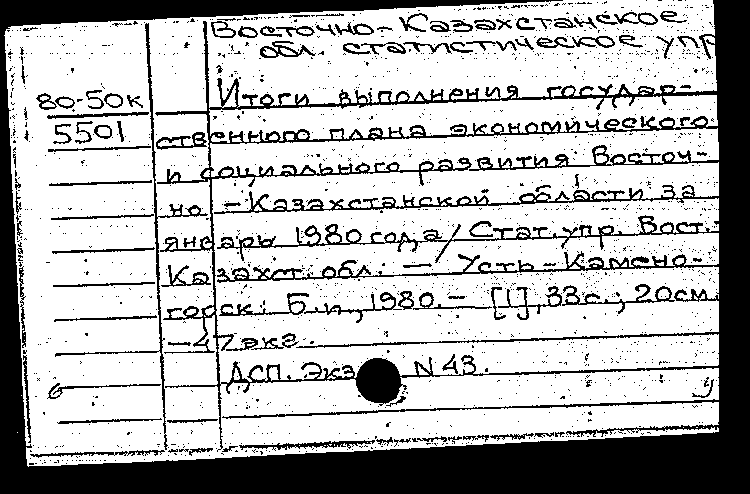 Восточно-Казахстанское
обл. статистическое упр
80-50к
5501
Итоги выполнения государ-
ственного плана экономического
и социального развития Восточ-
но-Казахстанской области за
январь 1980 года / Стат. упр. Вост.-
Казахст. обл. — Усть-Камено-
горск: Б.и., 1980. — [1], 33с.; 20см.
— 47 экз.
ДСП. Экз. N 43.